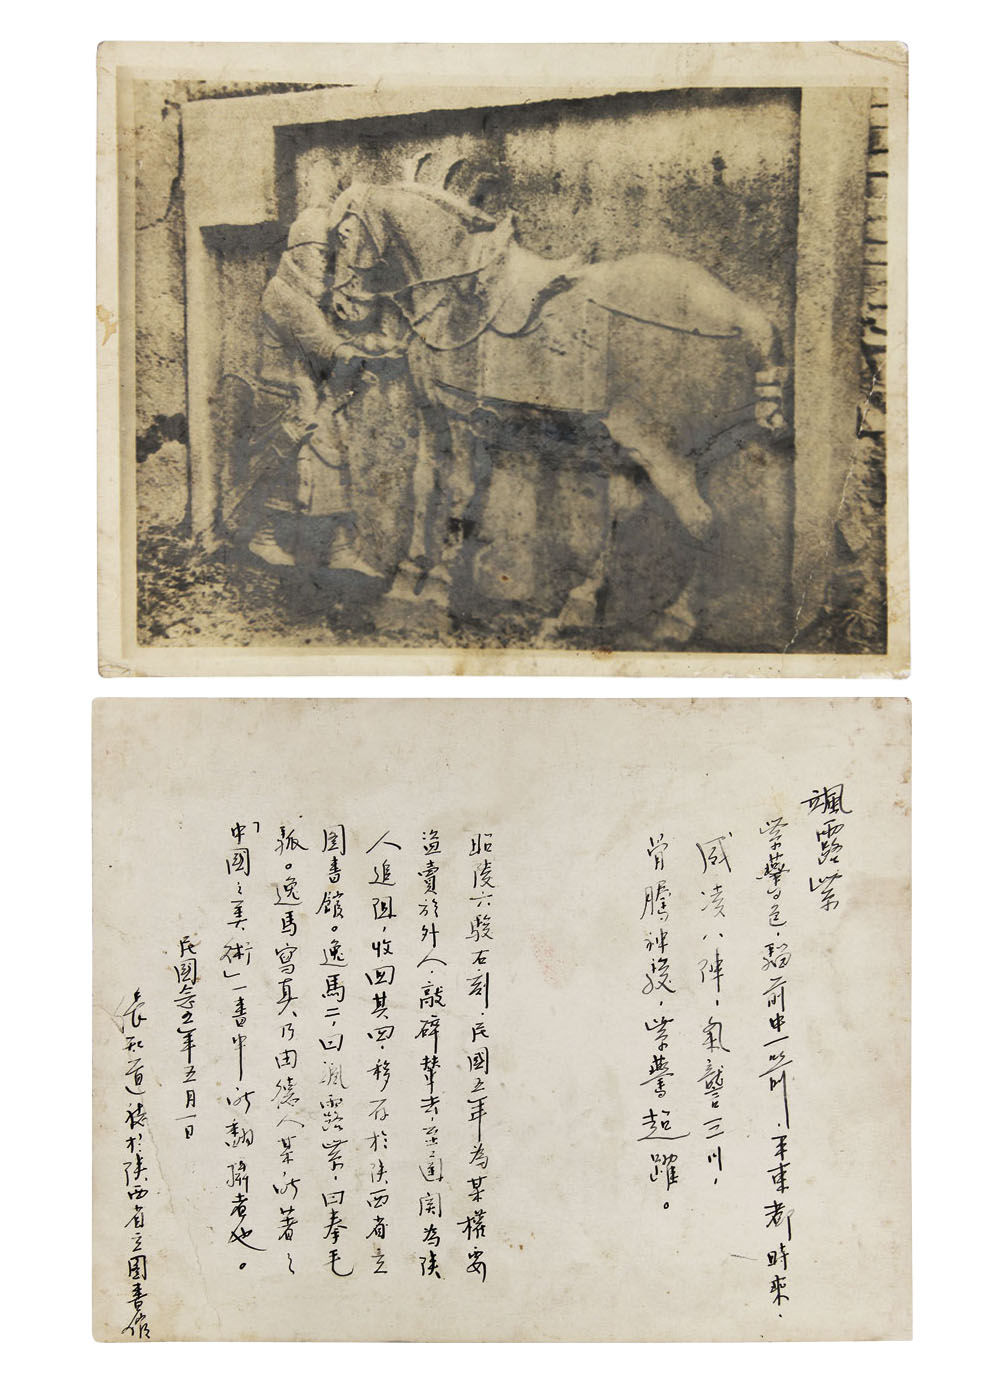 颯露紫
紫鷰色，騮前中一箭，平東都時乘，
威凌八陣，氣讋三川，
骨騰神駿，紫鷰超躍。
昭陵六駿石刻，民國五年為某權要
盜賣於外人，敲碎輦去，至潼關為陝
人追阻，收回其四，移存於陝西省立
圖書館。逸馬二，曰颯露紫，曰拳毛
騧。逸馬寫真，乃由德人某所著之
「中國之美術」一書中所翻攝者也。
民國念五年五月一日
張知道誌於陝西省立圖書館